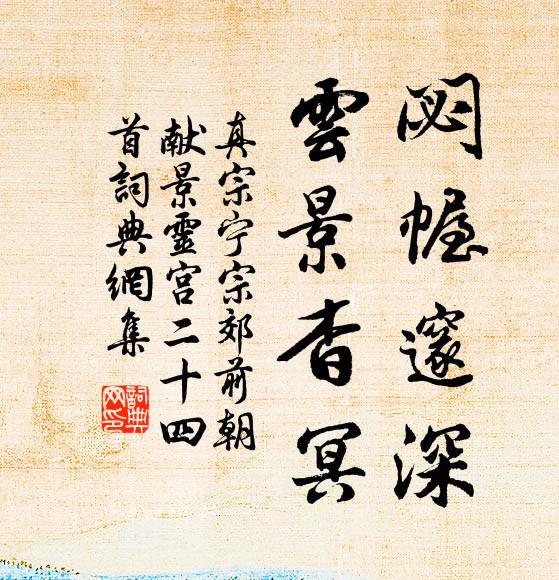 閟幄邃深
雲景杳冥
真宗宁宗郊前朝
献景靈宫二十四
首詞典網集
詞典
网印